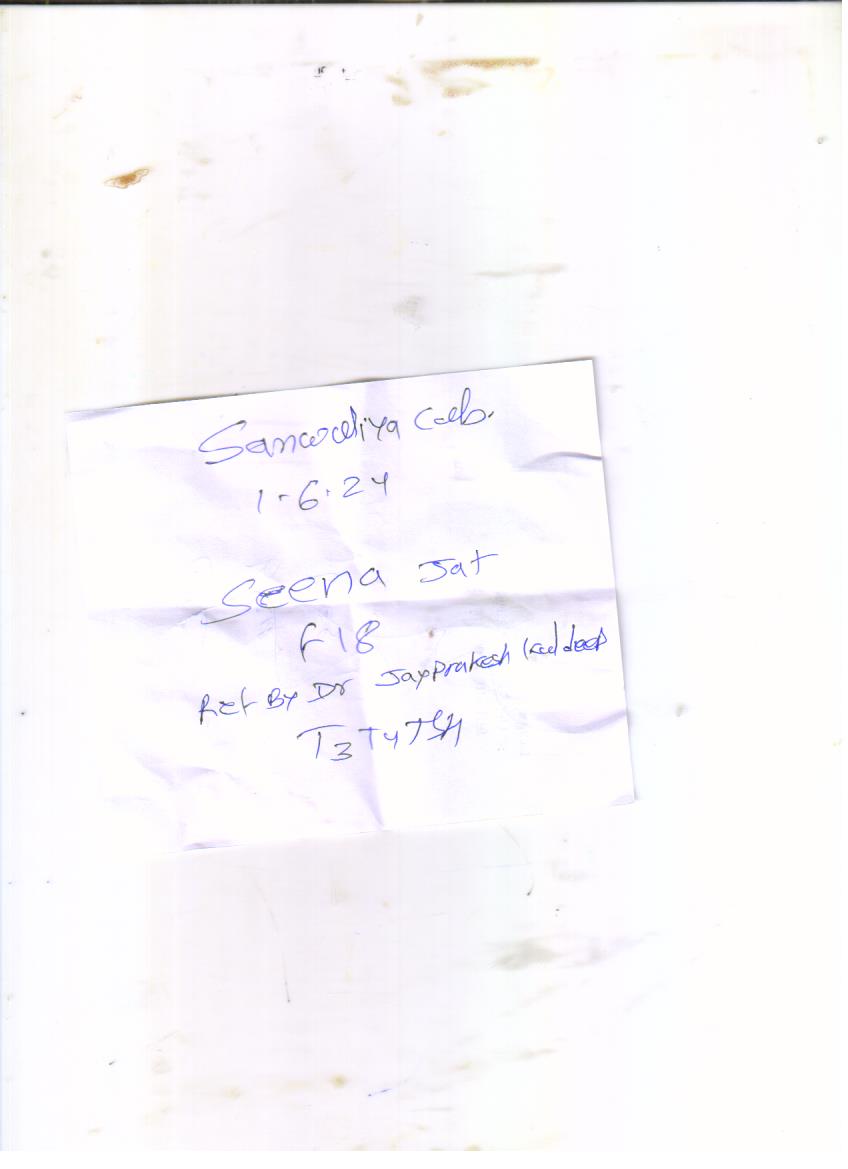 Sanwaliya Lab.
1.6.24
Seena Jat
F 18
Ref By Dr Jayprakesh Kuldeep
T3 T4 TSH